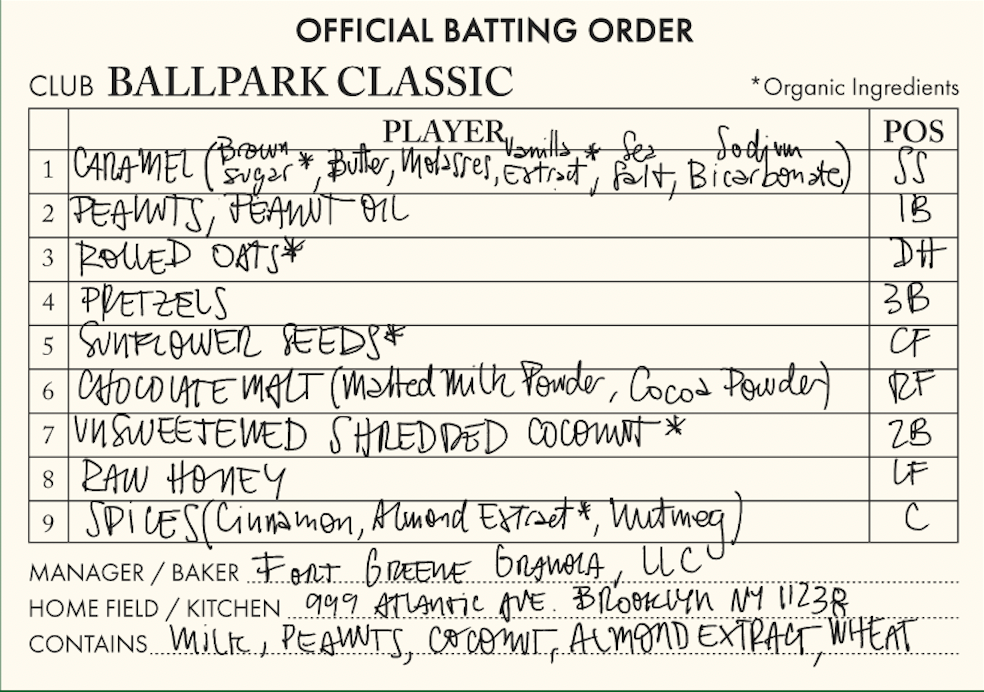 OFFICIAL BATTING ORDER
CLUB BALLPARK CLASSIC *Organic Ingredients
PLAYER POS
1 CARAMEL (Brown Sugar*, Butter, Molasses, Vanilla Extract*, Sea Salt, Sodium Bicarbonate) SS
2 PEANUTS, PEANUT OIL 1B
3 ROLLED OATS* DH
4 PRETZELS 3B
5 SUNFLOWER SEEDS* CF
6 CHOCOLATE MALT (Malted Milk Powder, Cocoa Powder) RF
7 UNSWEETENED SHREDDED COCONUT* 2B
8 RAW HONEY LF
9 SPICES (Cinnamon, Almond Extract*, Nutmeg) C
MANAGER / BAKER FORT GREENE GRANOLA, LLC
HOME FIELD / KITCHEN 999 ATLANTIC AVE. BROOKLYN NY 11238
CONTAINS MILK, PEANUTS, COCONUT, ALMOND EXTRACT, WHEAT